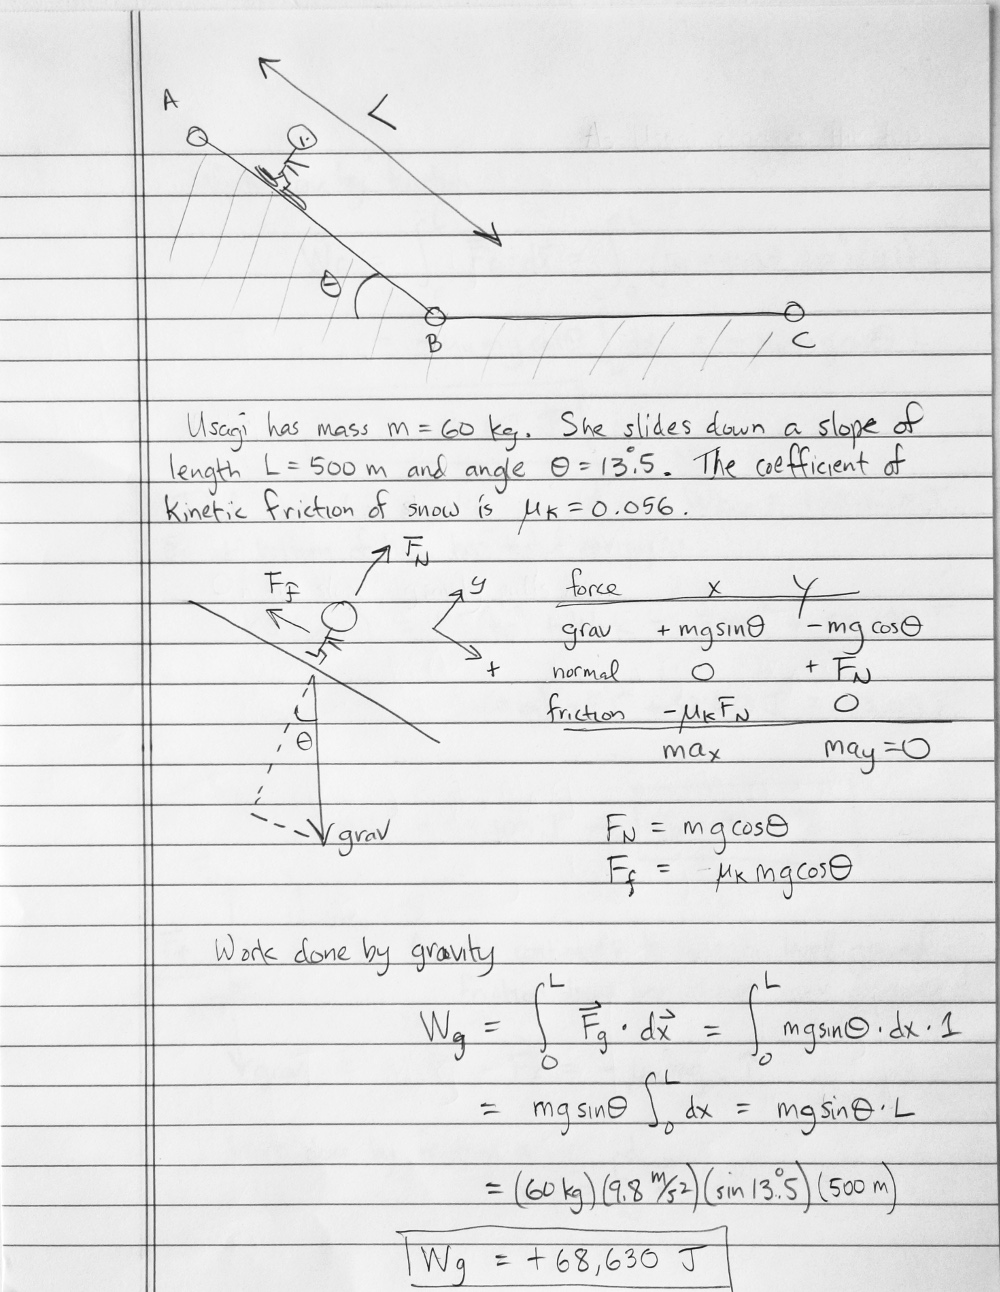 A
L
θ
B
C
Usagi has mass m = 60 kg. She slides down a slope of
length L = 500 m and angle θ = 13°.5. The coefficient of
kinetic friction of snow is μK = 0.056.
F_N
F_f
y
+
θ
grav
force x y
grav + mg sinθ - mg cosθ
normal 0 + F_N
friction - μK F_N 0
max may = 0
F_N = mg cosθ
F_f = - μK mg cosθ
Work done by gravity
W_g = ∫₀ᴸ F⃗_g · dx⃗ = ∫₀ᴸ mg sinθ · dx · 1
= mg sinθ ∫₀ᴸ dx = mg sinθ · L
= (60 kg) (9.8 m/s²) (sin 13°.5) (500 m)
W_g = + 68,630 J